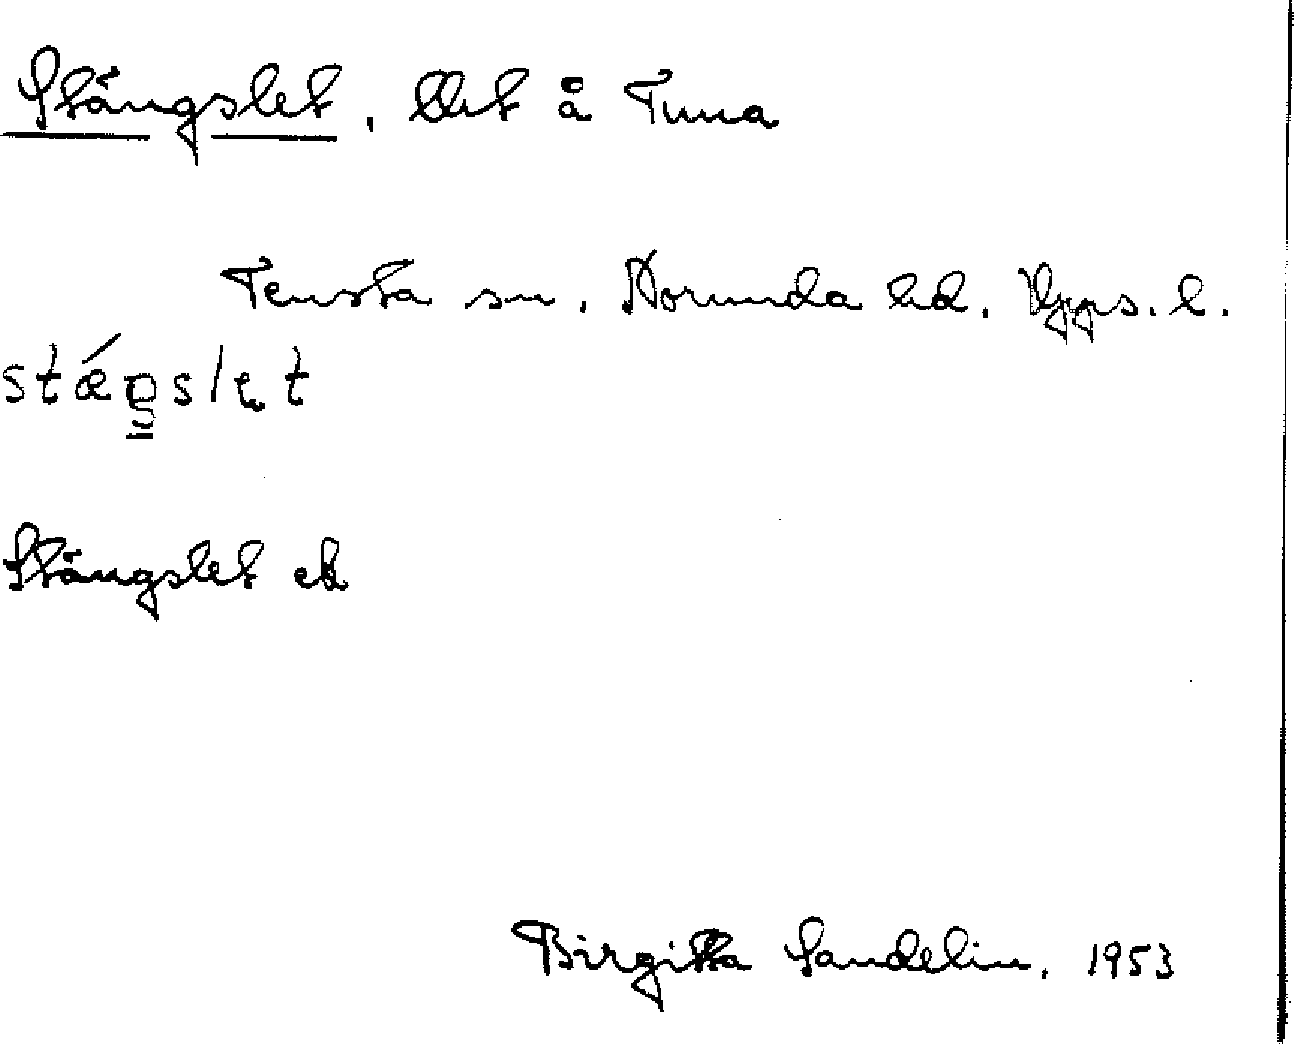 Stängslet, llet å Tuna
Tensta sn. Norunda hd. Upps. l.
stǽŋslet
Stängslet ek
Birgitta Sandelin. 1953